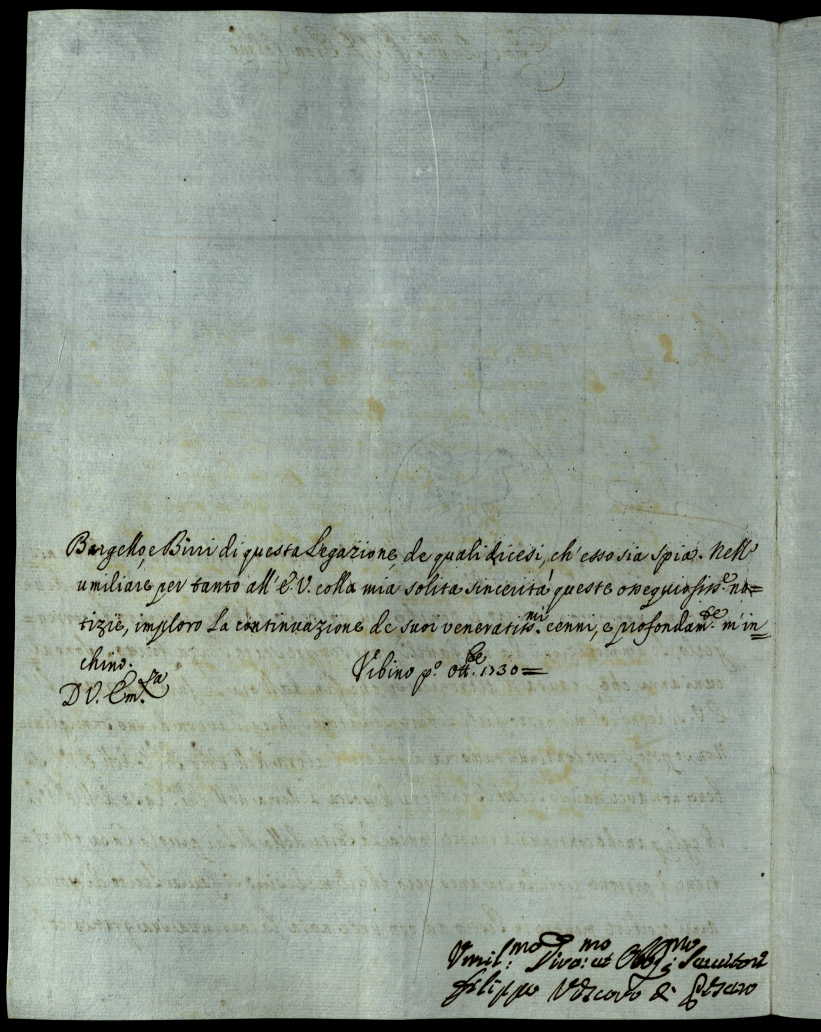 Bargello, e Birri di questa Legazione, de quali dicesi, ch'esso sia spia. Nell'
umiliare per tanto all'E.V. colla mia solita sincerità queste ossequiosiss.e no=
tizie, imploro la continuazione de suoi veneratiss.mi cenni, e profondam.te m'in=
chino.
Vrbino p.o Ott.bre 1730=
D V. Em.za
Vmil.mo Divo.mo et Obblig.mo Seruitore
Filippo Vescovo di Pesaro